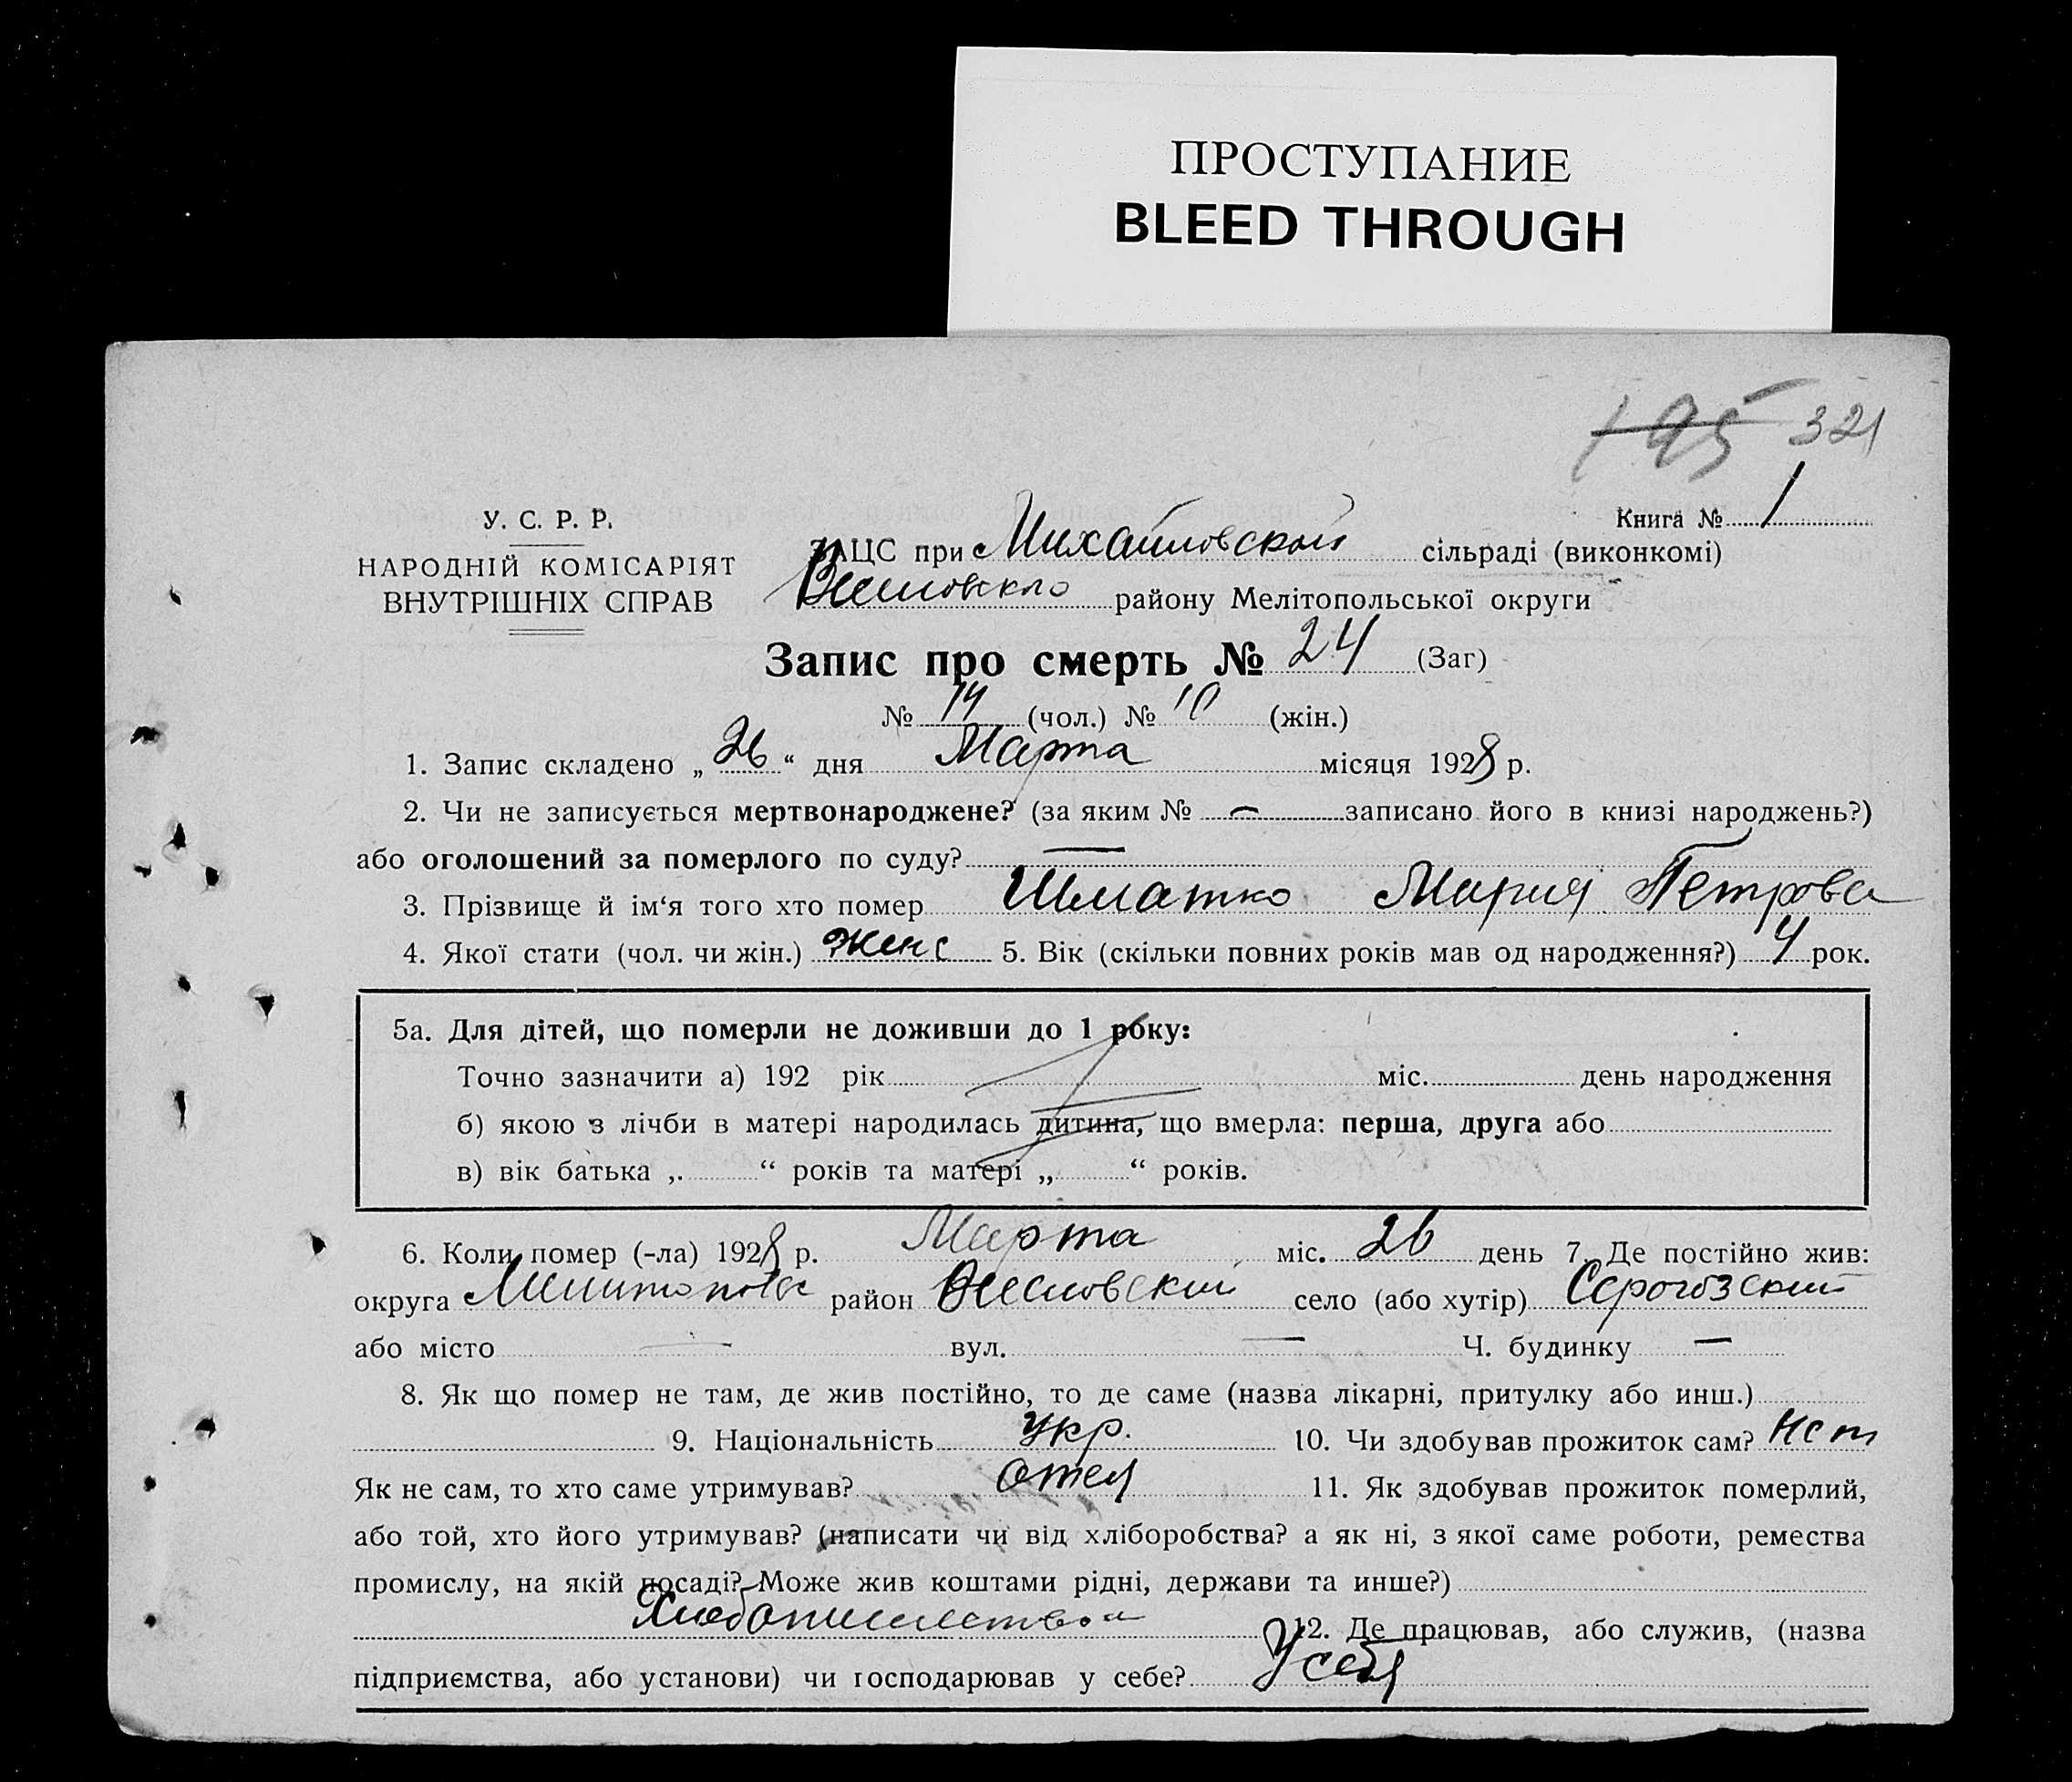 ПРОСТУПАНИЕ
BLEED THROUGH
195 321
У. С. Р. Р.
Книга № 1
НАРОДНІЙ КОМІСАРІЯТ
ВНУТРІШНІХ СПРАВ
ЗАЦС при Михайловской сільраді (виконкомі)
району Мелітопольської округи
Запис про смерть № 24 (Заг)
№ 14 (чол.) № 10 (жін.)
1. Запис складено „ 26 “ дня Марта місяця 1928 р.
2. Чи не записується мертвонароджене? (за яким № — записано його в книзі народжень?)
або оголошений за померлого по суду? —
3. Прізвище й ім‘я того хто помер Шматко Мария Петрова
4. Якої стати (чол. чи жін.) женс 5. Вік (скільки повних років мав од народження?) 4 рок.
5а. Для дітей, що померли не доживши до 1 року:
Точно зазначити а) 192 рік міс. день народження
б) якою з лічби в матері народилась дитина, що вмерла: перша, друга або
в) вік батька „ “ років та матері „ “ років.
6. Коли помер (-ла) 1928 р. Марта міс. 26 день 7. Де постійно жив:
округа район село (або хутір) Серогозский
або місто — вул. — Ч. будинку —
8. Як що помер не там, де жив постійно, то де саме (назва лікарні, притулку або инш.)
9. Національність укр. 10. Чи здобував прожиток сам? нет
Як не сам, то хто саме утримував? отец 11. Як здобував прожиток померлий,
або той, хто його утримував? (написати чи від хліборобства? а як ні, з якої саме роботи, ремества
промислу, на якій посаді? Може жив коштами рідні, держави та инше?)
12. Де працював, або служив, (назва
підприємства, або установи) чи господарював у себе? У себя